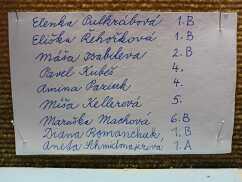 Elenka Pulkrábová 1.B
Eliška Řehořková 1.B
Máša Isabileva 2.B
Pavel Kubeš 4.
Amina 4.
Míša Kellerová 5.
Maruška Machová 6.B
Diana Romanchuk, 1.B
Aneta 1.A